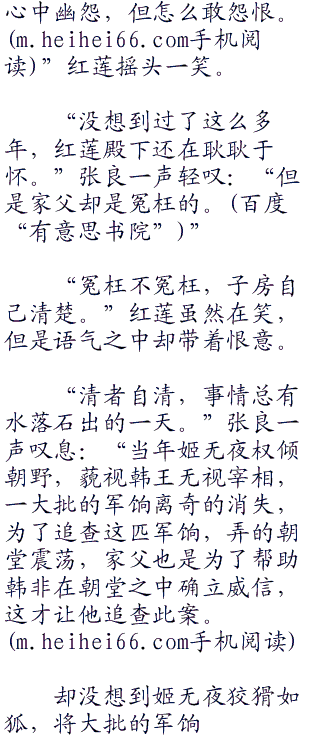 心中幽怨，但怎么敢怨恨。
(m.heihei66.com手机阅
读)”红莲摇头一笑。
“没想到过了这么多
年，红莲殿下还在耿耿于
怀。”张良一声轻叹：“但
是家父却是冤枉的。(百度
“有意思书院”)”
“冤枉不冤枉，子房自
己清楚。”红莲虽然在笑，
但是语气之中却带着恨意。
“清者自清，事情总有
水落石出的一天。”张良一
声叹息：“当年姬无夜权倾
朝野，藐视韩王无视宰相，
一大批的军饷离奇的消失，
为了追查这匹军饷，弄的朝
堂震荡，家父也是为了帮助
韩非在朝堂之中确立威信，
这才让他追查此案。
(m.heihei66.com手机阅读)
却没想到姬无夜狡猾如
狐，将大批的军饷